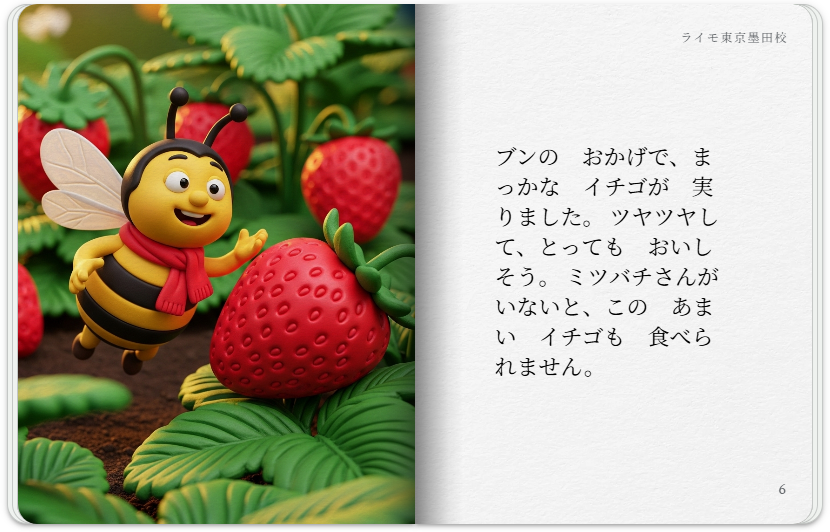 ライモ東京墨田校
ブンの　おかげで、ま
っかな　イチゴが　実
りました。 ツヤツヤし
て、とっても　おいし
そう。 ミツバチさんが
いないと、この　あま
い　イチゴも　食べら
れません。
6